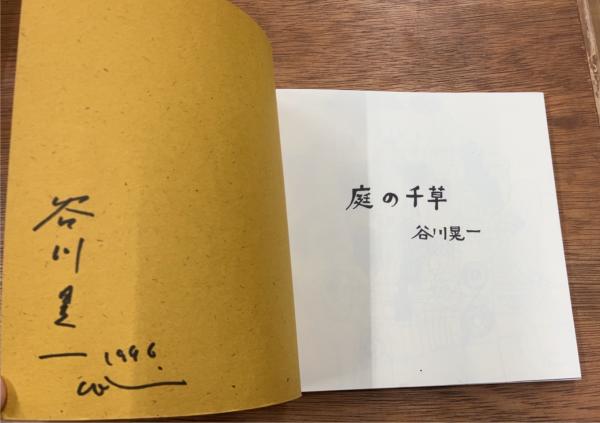 谷川晃一
1996.
庭の千草
谷川晃一